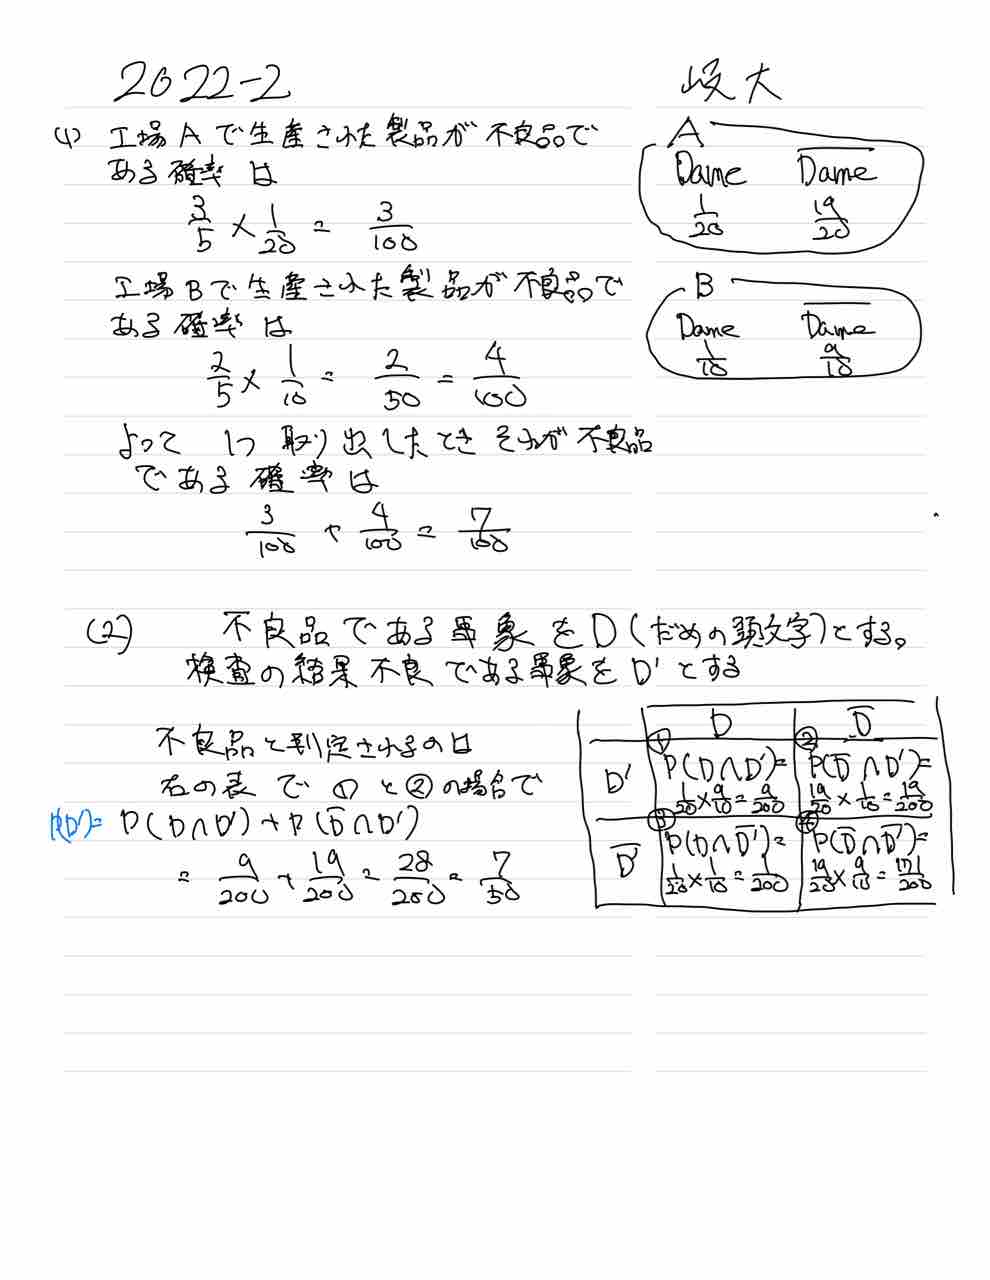 2022-2
岐大
(1) 工場Aで生産された製品が不良品で
ある確率は
3/5 × 1/20 = 3/100
A
Dame \overline{Dame}
1/20 19/20
工場Bで生産された製品が不良品で
ある確率は
2/5 × 1/10 = 2/50 = 4/100
B
Dame \overline{Dame}
1/10 9/10
よって 1つ取り出したとき それが不良品
である確率は
3/100 + 4/100 = 7/100
(2) 不良品である事象をD(だめの頭文字)とする。
検査の結果不良である事象をD'とする
不良品と判定されるのは
右の表で①と②の場合で
P(D')= P(D∩D')+P(\overline{D}∩D')
= 9/200 + 19/200 = 28/200 = 7/50
D \overline{D}
D' ① P(D∩D')= ② P(\overline{D}∩D')=
1/20 × 9/10 = 9/200 19/20 × 1/10 = 19/200
\overline{D'} ③ P(D∩\overline{D'})= ④ P(\overline{D}∩\overline{D'})=
1/20 × 1/10 = 1/200 19/20 × 9/10 = 171/200